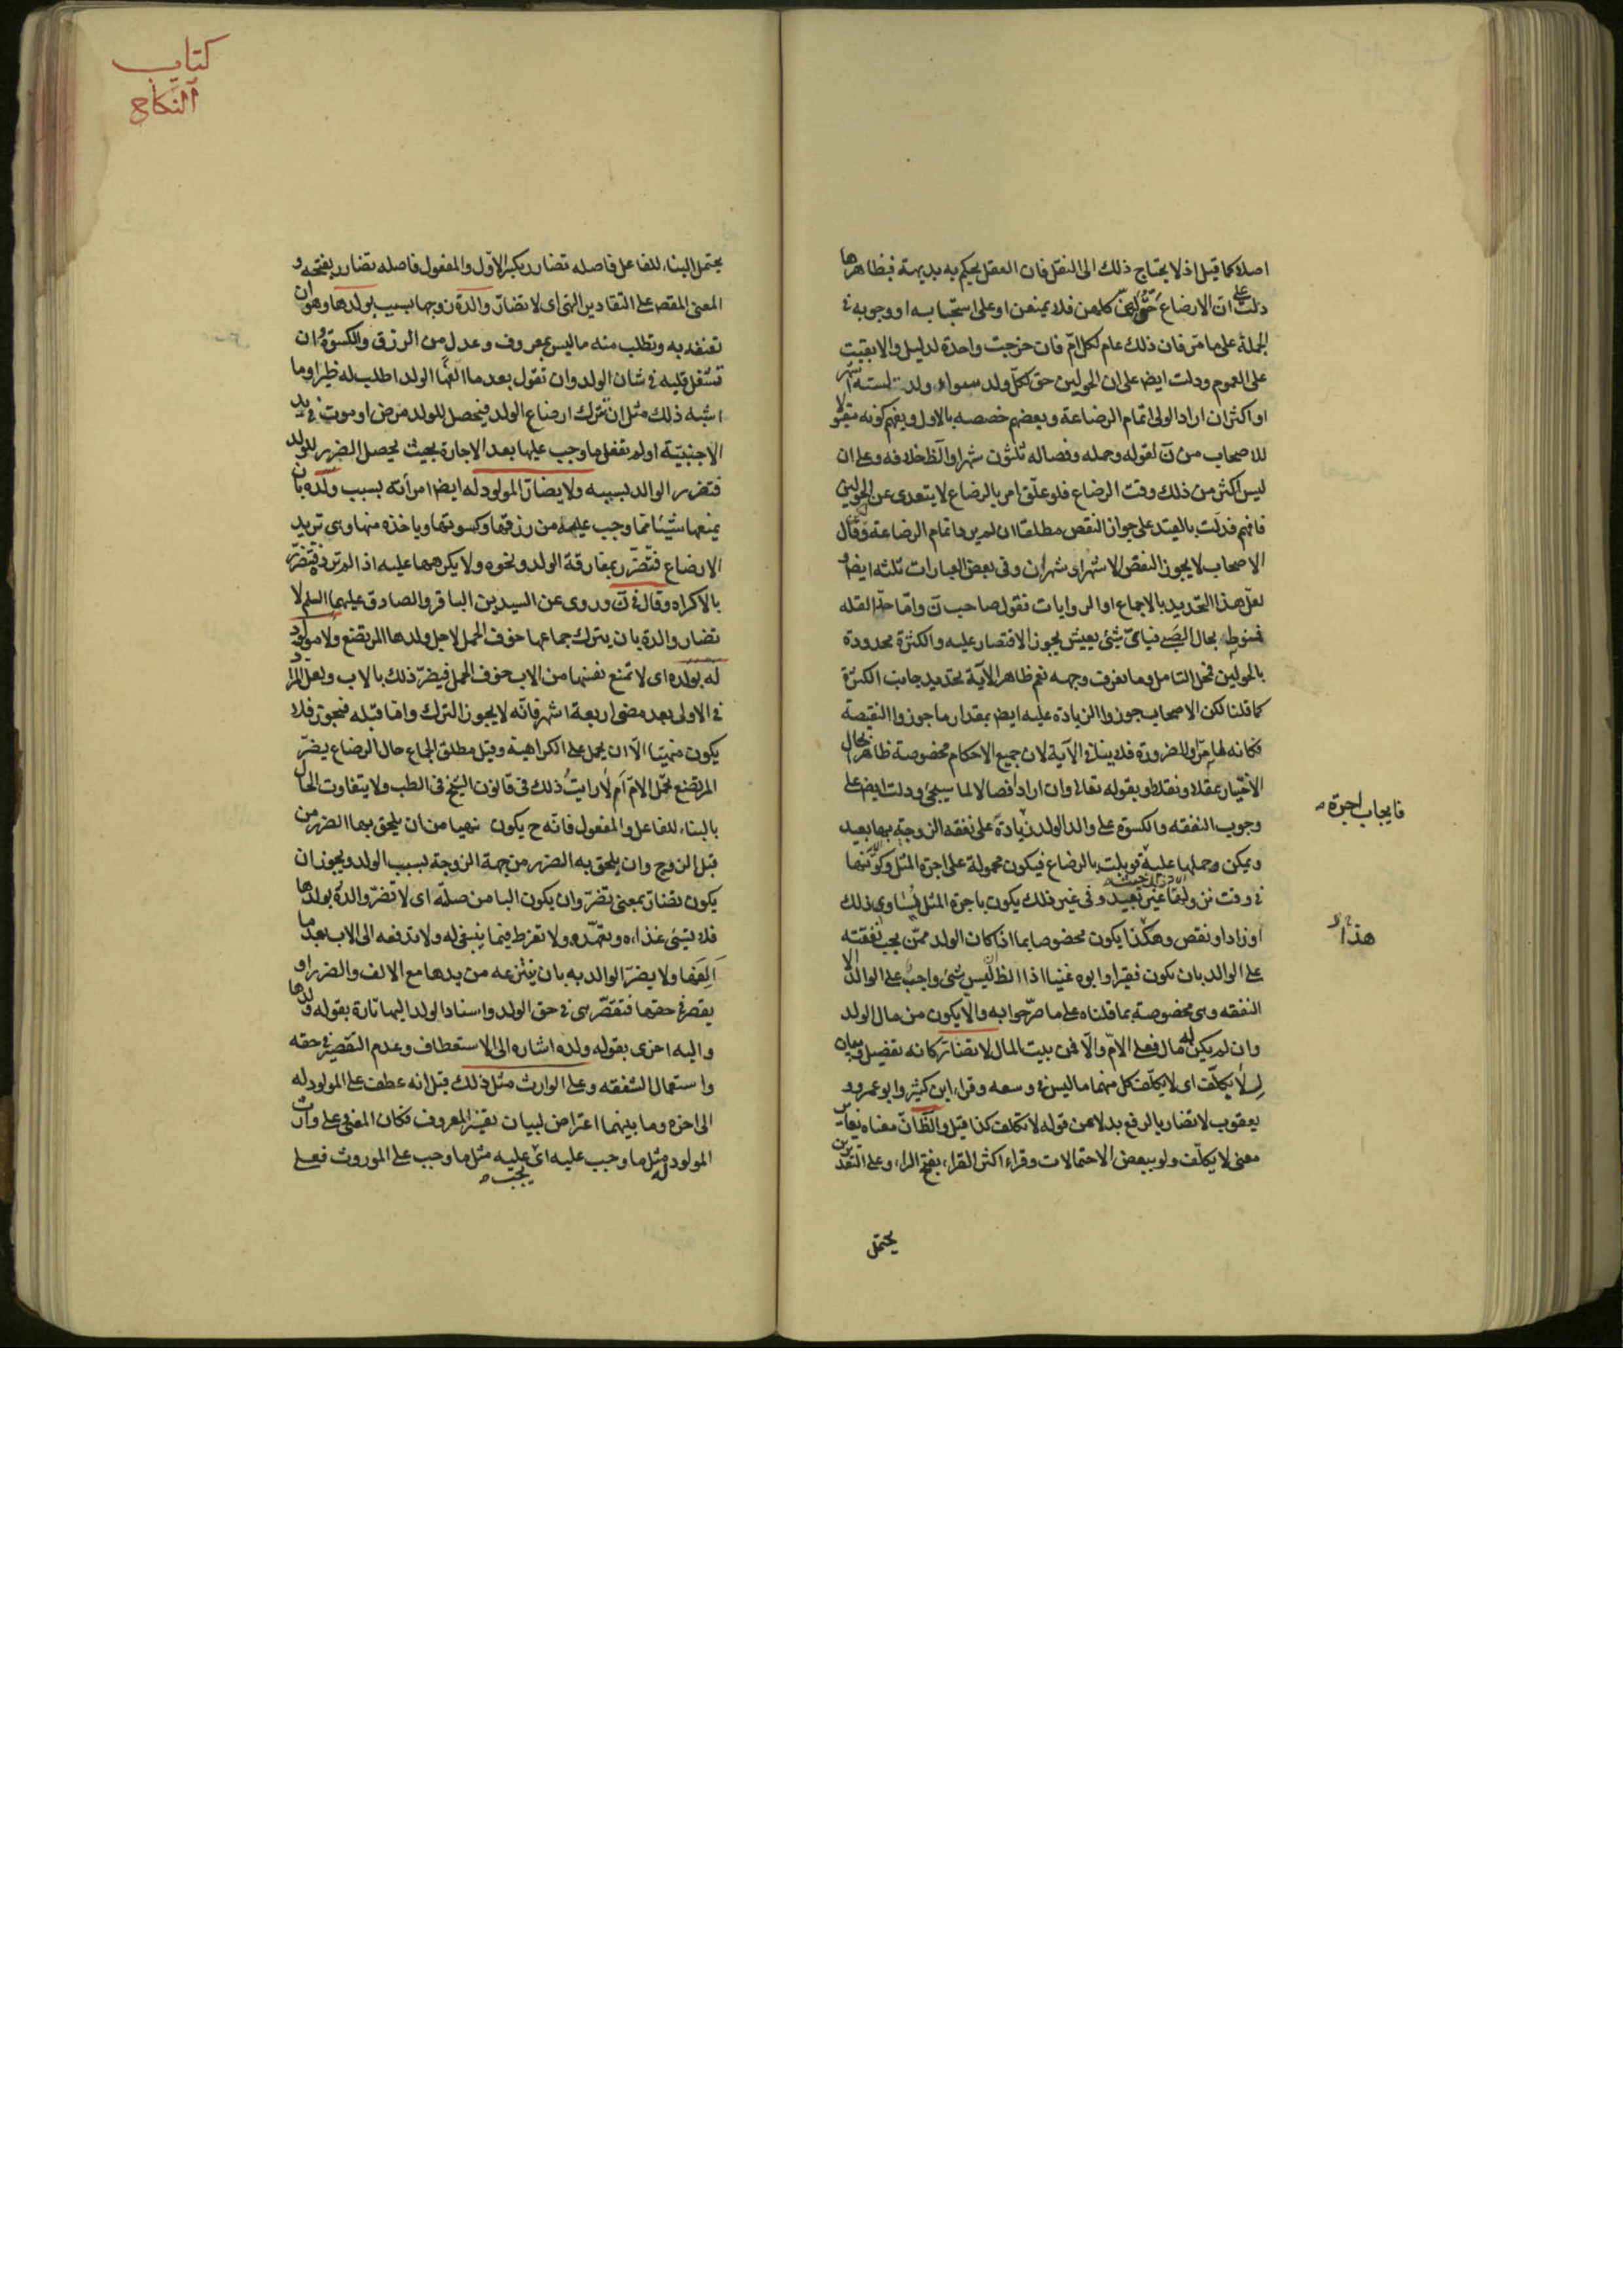 اصلا كما قيل اذ لا يحتاج ذلك الى النقل فان العقل يحكم به بديهة فبظاهرها
دلت على ان الارضاع حق لهن كلهن فلا يمنعن او على استحبابه او وجوبه فى
الجملة على ما مر فان ذلك عام لكل ام فان خرجت واحدة لدليل والا بقيت
على العموم ودلت ايض على ان الحولين حق كل ولد سواء ولد لستة اشهر
او اكثر ان اراد الولى اتمام الرضاعة وبعضهم خصصه بالاول ويفهم كونه مقبولا
للاصحاب من ن لقوله وحمله وفصاله ثلثون شهرا والظ خلافه وعلى ان
ليس اكثر من ذلك وقت الرضاع فلو علق امر بالرضاع لا يتعدى عن الحولين
فافهم فدلت بالقيد على جواز النقص مطلقا ان لم يرد اتمام الرضاعة وقال
الاصحاب لا يجوز النقص الا شهر او شهران وفى بعض العبارات ثلثه ايض و
لعل هذا التحديد بالاجماع او الروايات نقول صاحب ن واما حد القله
فمنوط بحال الصبى فباى شئ يعيش يجوز الاقتصار عليه والكثرة محدودة
بالحولين محل التامل وما نعرف وجهه نعم ظاهر الآية تحديد جانب الكثرة
كما قلنا لكن الاصحاب جوزوا الزيادة عليه ايض بمقدار ما جوزوا النقيصة
فكانه لما مر وللضرورة فلا ينافى الآية لان جميع الاحكام مخصوصة ظاهرا بحال
الاختيار عقلا ونقلا وبقوله تعالى وان اراد افصالا لما سيجئ ودلت ايض على
وجوب النفقه والكسوة على والد الولد زيادة على نفقه الزوجة بها بعيد
ويمكن وحملها عليه قوبلت بالرضاع فيكون محمولة على اجرة المثل وكونها
فى وقت نزولها غير بعيد وفى غير ذلك يكون باجرة المثل يساوى ذلك
او زاد او نقص وهكذا يكون مخصوصا بما اذا كان الولد ممن يجب نفقته
على الوالد بان يكون فقيرا وابوه غنيا اذ الظ ان ليس شئ واجب على الوالد الا
النفقه وهى مخصوصة بما قلناه على ما صرحوا به والا يكون من مال الولد
وان لم يكن له مال فعلى الام والا فمن بيت المال لا تضار كانه تفصيل وبيان
لـ لا يكلف اى لا يكلف كل منهما ما ليس فى وسعه وقراء ابن كثير وابو عمرو و
يعقوب لا تضار بالرفع بدلا من قوله لا تكلف كذا قيل والظ ان معناه يغاير
معنى لا يكلف ولو ببعض الاحتمالات وقراء اكثر القراء بفتح الراء وعلى التقديرين
يحتمل
فايجاب اجرة
هذا
كتاب
النكاح
يحتمل البناء للفاعل فاصله تضارر بكسر الاول والمفعول فاصله تضارر بفتحه و
المعنى المقص على التقادير النهى اى لا تضار والدة زوجها بسبب ولدها وهو ان
تعنفه به وتطلب منه ما ليس بمعروف وعدل من الرزق والكسوة وان
تشغل قلبه فى شان الولد وان تقول بعد ما الفها الولد اطلب له ظئرا وما
اشبه ذلك مثل ان تترك ارضاع الولد فيحصل للولد مرض او موت فى يد
الاجنبية او لم تفعل ما وجب عليها بعد الاجارة بحيث يحصل الضرر للولد
فتضرر الوالد بسببه ولا يضار المولود له ايض امرأته بسبب ولده بان
يمنعها شيئا مما وجب عليه من رزقها وكسوتها وياخذه منها وهى تريد
الارضاع فتتضرر بمفارقة الولد ونحوه ولا يكرهها عليه اذا لم ترده فتتضرر
بالاكراه وقال فى ن وروى عن السيدين الباقر والصادق عليهما السلم لا
تضار والدة بان يترك جماعها خوف الحمل لاجل ولدها المرتضع ولا مولود
له بولده اى لا تمنع نفسها من الاب خوف الحمل فيضر ذلك بالاب ولعل المراد
فى الاولى بعد مضى اربعة اشهر فانه لا يجوز الترك واما قبله فيجوز فلا
يكون منهيا الا ان يحمل على الكراهية وقيل مطلق الجماع حال الرضاع يضر
المرتضع تحمل الام ام لا رايت ذلك فى قانون الشيخ فى الطب ولا يتفاوت الحال
بالبناء للفاعل والمفعول فانه ح يكون نهيا من ان يلحق بها الضرر من
قبل الزوج وان يلحق به الضرر من جهة الزوجة بسبب الولد ويجوز ان
يكون تضار بمعنى تضر وان يكون البا من صلة اى لا تضر والدة بولدها
فلا تسئ غذاءه وتعهده ولا تفرط فيما ينبغى له ولا تدفعه الى الاب بعد ما
الفها ولا يضر الوالد به بان ينتزعه من يدها مع الالف والضرر او
يقصر فى حقها فتقصر هى فى حق الولد واسناد الولد اليها تارة بقوله ولدها
واليه اخرى بقوله ولده اشاره الى الاستعطاف وعدم التقصير فى حقه
واستعمال الشفقه وعلى الوارث مثل ذلك قيل انه عطف على المولود له
الى اخره وما بينهما اعتراض لبيان تفسير المعروف فكان المعنى على وارث
المولود له مثل ما وجب عليه اى عليه مثل ما وجب على الموروث فعلى
يجب